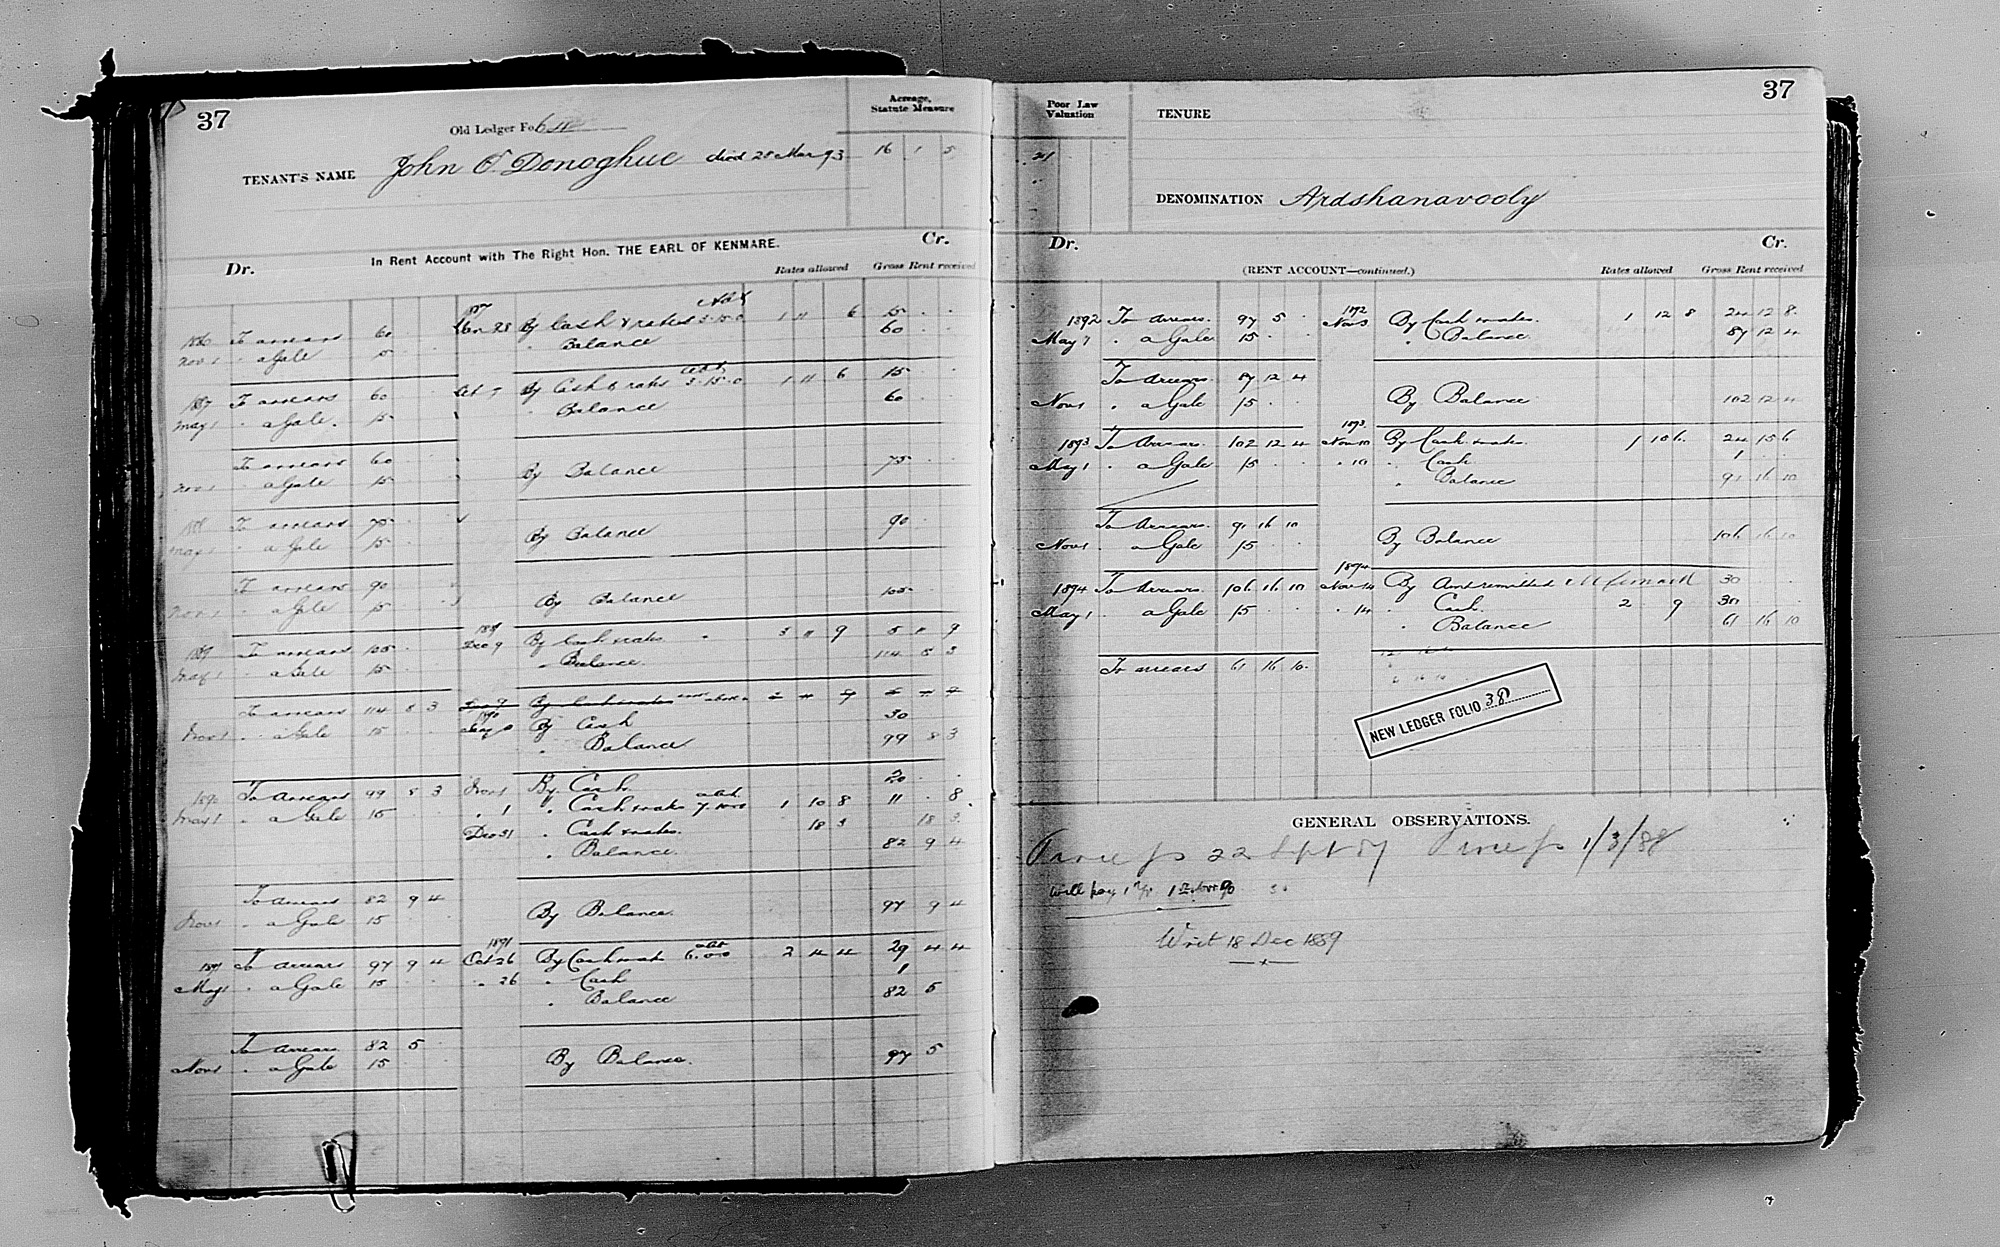 37
Old Ledger Fo.
Acreage,
Statute Measure
TENANT'S NAME John O'Donoghue died 28 Mar 93 16 1 5
In Rent Account with The Right Hon. THE EARL OF KENMARE.
Dr. Cr.
Rates allowed Gross Rent received
1886 To arrears 60 By Cash & rates 3.15.0 1 11 6 15
Nov 1 " a Gale 15 " Balance 60
1887 To arrears 60 Oct 7 By Cash & rates 3.15.0 1 11 6 15
May 1 " a Gale 15 " Balance 60
To arrears 60 By Balance 75
Nov 1 " a Gale 15
1888 To arrears 75 By Balance 90
May 1 " a Gale 15
To arrears 90 By Balance 105
Nov 1 " a Gale 15
1889
1889 To arrears 105 Dec 9 By Cash & rates 3 11 9 5 11 9
May 1 " a Gale 15 " Balance 114 8 3
To arrears 114 8 3 Dec 9 By Cash & rates above
1890
Nov 1 " a Gale 15 By Cash 30
" Balance 99 8 3
1890 To Arrears 99 8 3 Nov 1 By Cash
May 1 " a Gale 15 " 1 " Cash & rates abt. 7.10.0 1 10 8 11 . 8
Dec 31 " Cash & rates. 18 3 18 3
" Balance 82 9 4
To arrears 82 9 4 By Balance 97 9 4
Nov 1 " a Gale 15
1891
1891 To arrears 97 9 4 Oct 26 By Cash & rates abt 6.0.0 2 4 4 29 4 4
May 1 " a Gale 15 " 26 " Cash 1
" Balance 82 5
To Arrears 82 5 By Balance. 97 5
Nov 1 " a Gale 15
37
Poor Law
Valuation
TENURE
DENOMINATION Ardshanavooly
Dr. Cr.
(RENT ACCOUNT—continued.)
Rates allowed Gross Rent received
1892 To Arrears. 97 5 1892 Nov 3 By Cash & rates. 1 12 8 24 12 8
May 1 " a Gale 15 " Balance 87 12 4
To Arrears. 87 12 4
Nov 1 " a Gale 15 By Balance 102 12 4
1893
1893 To Arrears. 102 12 4 Nov 10 By Cash & rates. 1 10 6 24 15 6
May 1 " a Gale 15 " 10 " Cash 1
" Balance 91 16 10
To Arrears. 91 16 10 By Balance 106 16 10
Nov 1 " a Gale 15
1894
1894 To Arrears 106 16 10 Nov 14 By Amt remitted 30
May 1 " a Gale 15 " 14 " Cash. 2 9 30
" Balance 61 16 10
To arrears 61 16 10
NEW LEDGER FOLIO 38
GENERAL OBSERVATIONS.
22 Sept 87 1/3/88
Will pay
Writ 18 Dec 1889